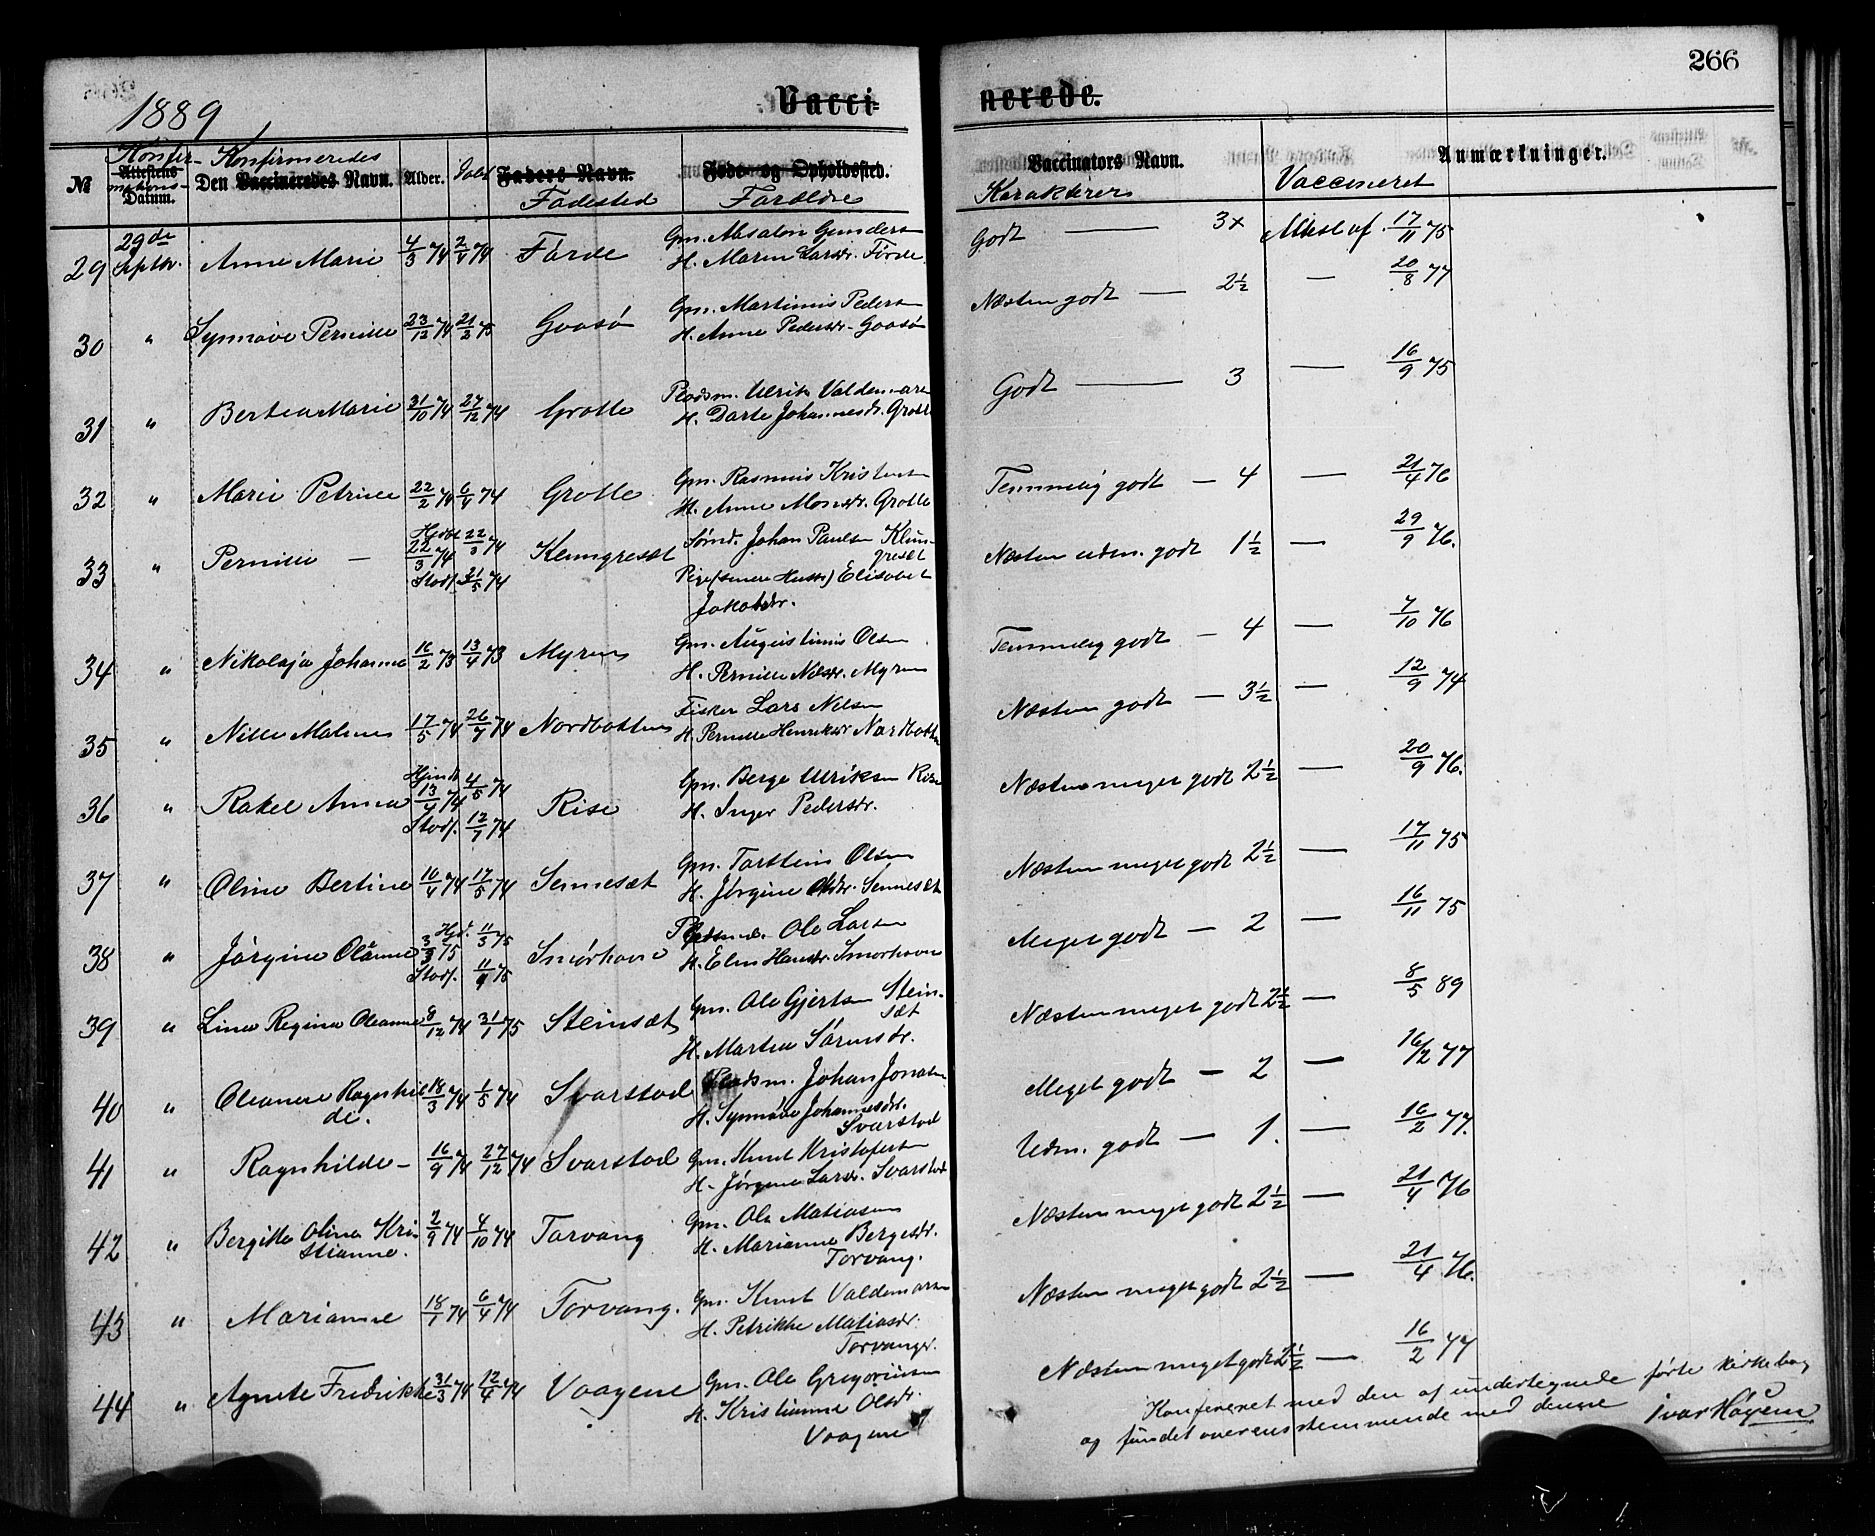 266
1889
Vacci- nerede.
№ Konfirmations- Attestens Datum. Konfirmeredes Den Vaccineredes Navn. Alder. Døbt Faders Navn. Fødested Føde- og Opholdssted. Forældre Vaccinators Navn. Karakterer Anmærkninger. Vaccineret
29 29de Septbr. Anne Marie 4/3 74 2/4 74 Førde Gm. Absalon Gunders
H. Maren Larsdr. Førde Godt — 3x Attest af 17/11 75
30 " Synnøve Pernille 23/12 74 21/2 75 Gaasø Gm. Martinus Peders
H. Anne Pedersdr. Gaasø Næsten godt — 2½ — 20/8 77
31 " Bertea Marie 31/10 74 27/12 74 Grotle Pladsm. Ulrik Valdemars
H. Dorte Johannesdr. Grotle Godt — 3 — 16/9 75
32 " Marie Petrine 22/2 74 6/4 74 Grotle Gm. Rasmus Kristens
H. Anne Monsdr. Grotle Temmelig godt — 4 — 21/4 76
33 " Pernille — Hjdbt 22/3 74 22/3 74
Stadf. 31/5 74 Klemgreset Sønd. Johan Paulsen Klem-
greset
Pige (senere Hustr) Elisabet
Jakobsdr. Næsten udm. godt 1½ — 29/9 76.
34 " Nikolaja Johanne 16/2 73 13/4 73 Myren Gm. Augustinus Olsen
H. Pernille Nilsdr. Myren Temmelig godt — 4 — 7/10 76
35 " Nille Malene 17/5 74 26/7 74 Nordbotten Fisker Lars Nilsen
H. Pernille Henriksdr Nordbotten Næsten godt — 3½ — 12/9 74
36 " Rakel Anna Hjmdt 13/4 74 4/5 74
Stadf. 12/7 74 Rise Gm. Berge Ulriksen Rise
H. Inger Pedersdr. Næsten meget godt 2½ — 20/9 76.
37 " Oline Bertine 10/4 74 17/5 74 Sennesæt Gm. Torstein Olsen
H. Jørgine Olsdr. Sennesæt Næsten meget godt 2½ — 17/11 75
38 " Jørgine Oleanne Hjd. 3/3 75 11/3 75
Stadf. 11/4 75 Smørhavn Pladsmd. Ole Larsen
H. Elen Hansdr. Smørhavn Meget godt — 2 — 16/11 75
39 " Lina Regina Oleanne 8/12 74 31/1 75 Steinsæt Gm. Ole Gjertsen Stein-
sæt
H. Martea Sørensdr. Næsten meget godt 2½ — 8/5 89
40 " Oleanne Ragnhil-
de. 18/3 74 1/5 74 Svarstad Pladsm. Johan Jonasen
H. Synnøve Johannesdr.
Svarstad Meget godt — 2 — 16/2 77
41 " Ragnhilde — 16/9 74 27/12 74 Svarstad Gm. Knut Kristofersen
H. Jørgine Larsdr. Svarstad Udm. godt — 1. — 16/2 77.
42 " Bergitte Olina Kri-
stianne. 2/9 74 4/10 74 Torvang Gm. Ole Matiasen
H. Marianne Bergesdr.
Torvang. Næsten meget godt 2½ — 21/4 76
43 " Marianne 18/1 74 6/4 74 Torvang. Gm. Knut Valdemarsen
H. Petrikke Matiasdr.
Torvanger. Næsten meget godt 2½ — 21/4 76.
44 " Agnete Fredrikke 31/3 74 12/4 74 Vaagene Gm. Ole Gregoriusen
H. Kristianne Olsdr.
Vaagene Næsten meget godt 2½ — 16/2 77
Konfereret med den af undertegnede førte kirkebog
og fundet overensstemmende med denne Ivar Høyem